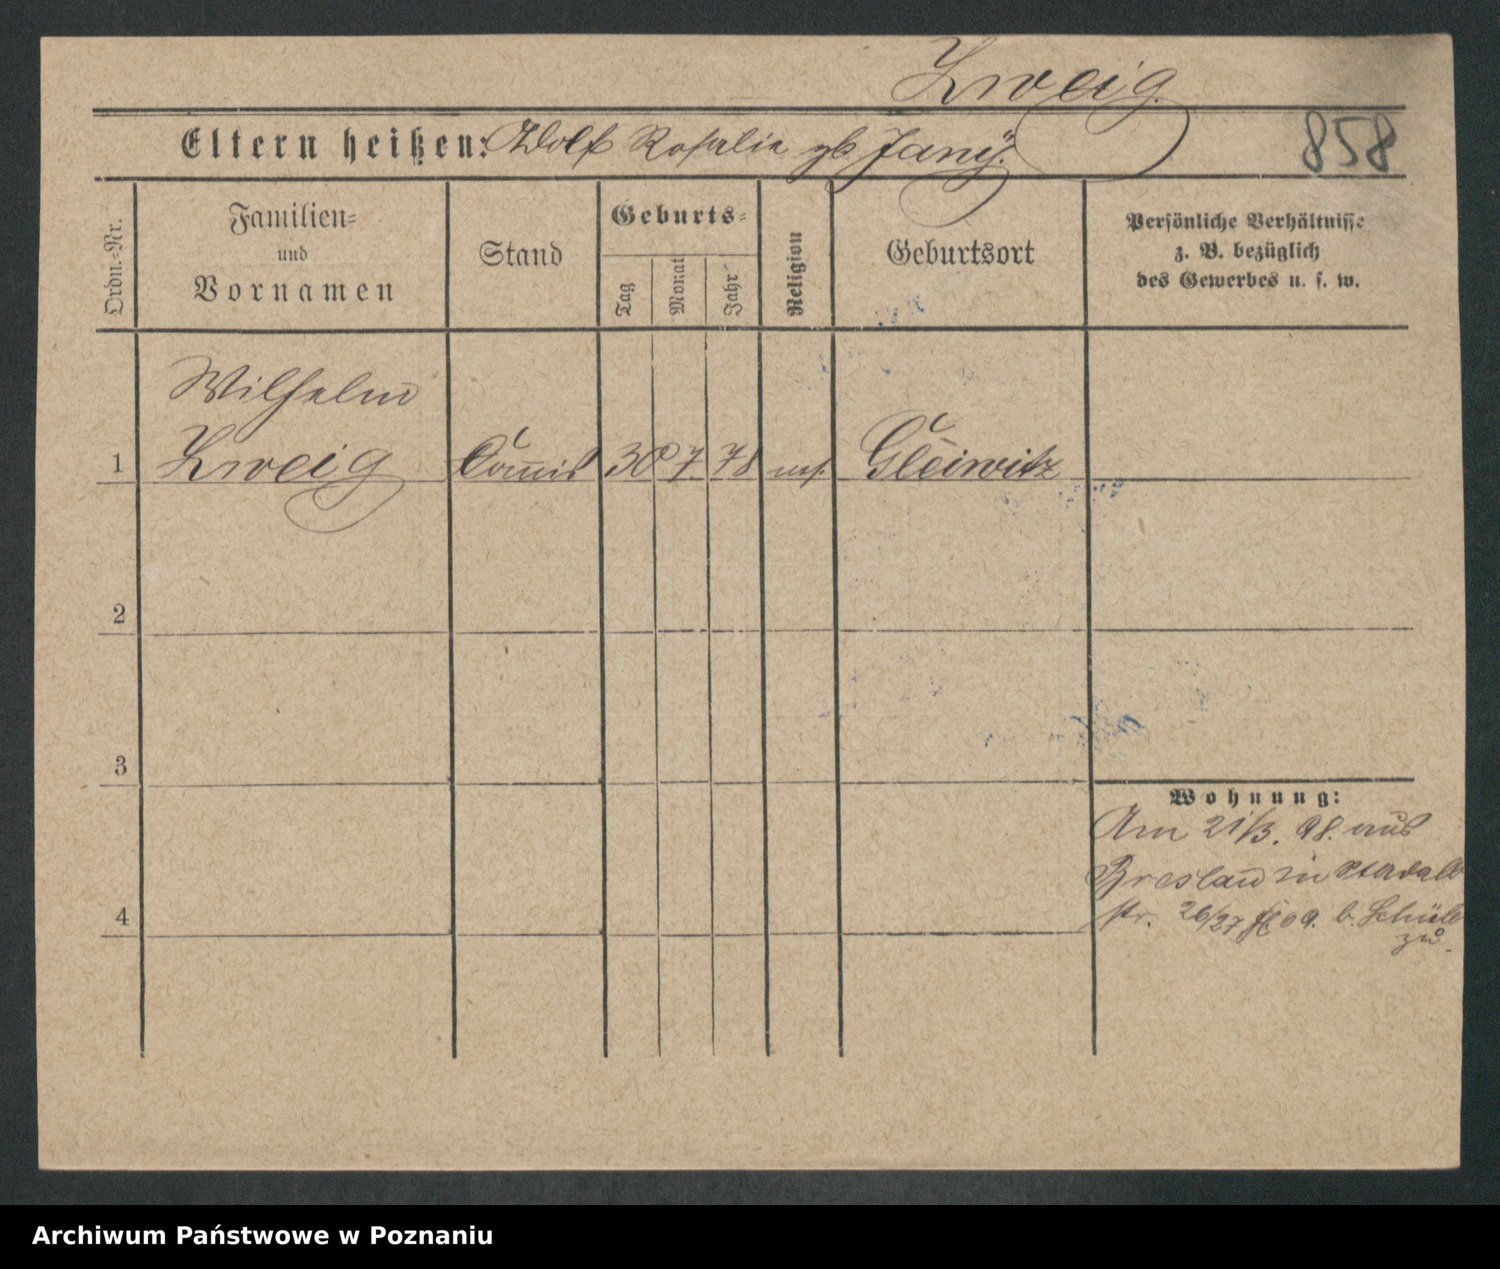 Zweig.
Eltern heißen: Adolf Rosalie gb Jany.
858
Ordn.-Nr.
Familien-
und
Vornamen
Stand
Geburts-
Tag
Monat
Jahr
Religion
Geburtsort
Persönliche Verhältnisse
z. B. bezüglich
des Gewerbes u. s. w.
Wilhelm
1 Zweig Commis 30 7 78 mos. Gleiwitz
2
3
Wohnung:
Am 21/3. 98. aus
Breslau in
4
str. 26/27 b.
zu.
Archiwum Państwowe w Poznaniu